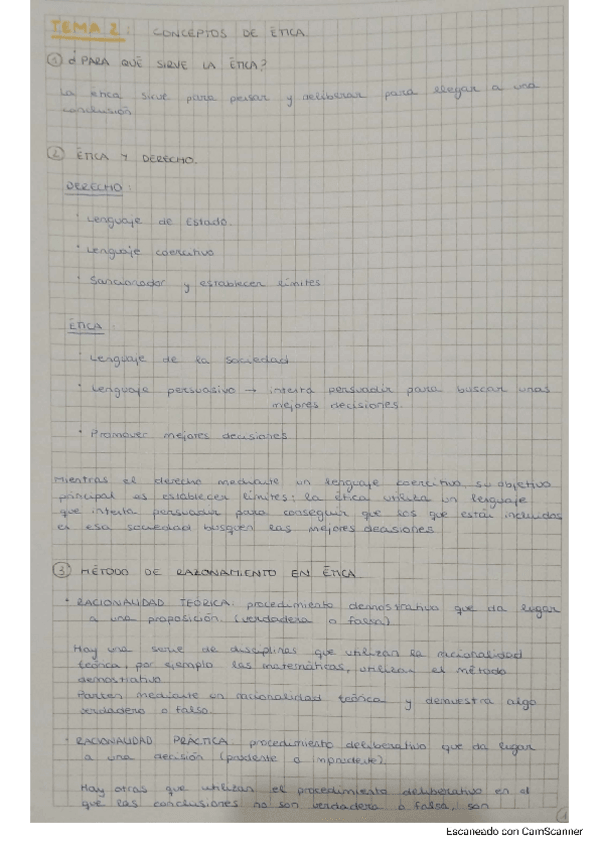 TEMA 2: CONCEPTOS DE ÉTICA
① ¿PARA QUÉ SIRVE LA ÉTICA?
La ética sirve para pensar y deliberar para llegar a una
conclusión
② ÉTICA Y DERECHO.
DERECHO:
· Lenguaje de Estado.
· Lenguaje coercitivo
· Sancionador y establecer límites
ÉTICA:
· Lenguaje de la sociedad
· Lenguaje persuasivo → intenta persuadir para buscar unas
mejores decisiones.
· Promover mejores decisiones
Mientras el derecho mediante un lenguaje coercitivo su objetivo
principal es establecer límites; la ética utiliza un lenguaje
que intenta persuadir para conseguir que los que están incluidos
en esa sociedad busquen las mejores decisiones
③ MÉTODO DE RAZONAMIENTO EN ÉTICA
· RACIONALIDAD TEÓRICA: procedimiento demostrativo que da lugar
a una proposición. (verdadera o falsa)
Hay una serie de disciplinas que utilizan la racionalidad
teórica, por ejemplo las matemáticas, utilizan el método
demostrativo.
Parten mediante un racionalidad teórica y demuestra algo
verdadero o falso.
· RACIONALIDAD PRÁCTICA: procedimiento deliberativo que da lugar
a una decisión (prudente o imprudente).
Hay otras que utilizan el procedimiento deliberativo en el
que las conclusiones no son verdadera o falsa, son
1
Escaneado con CamScanner